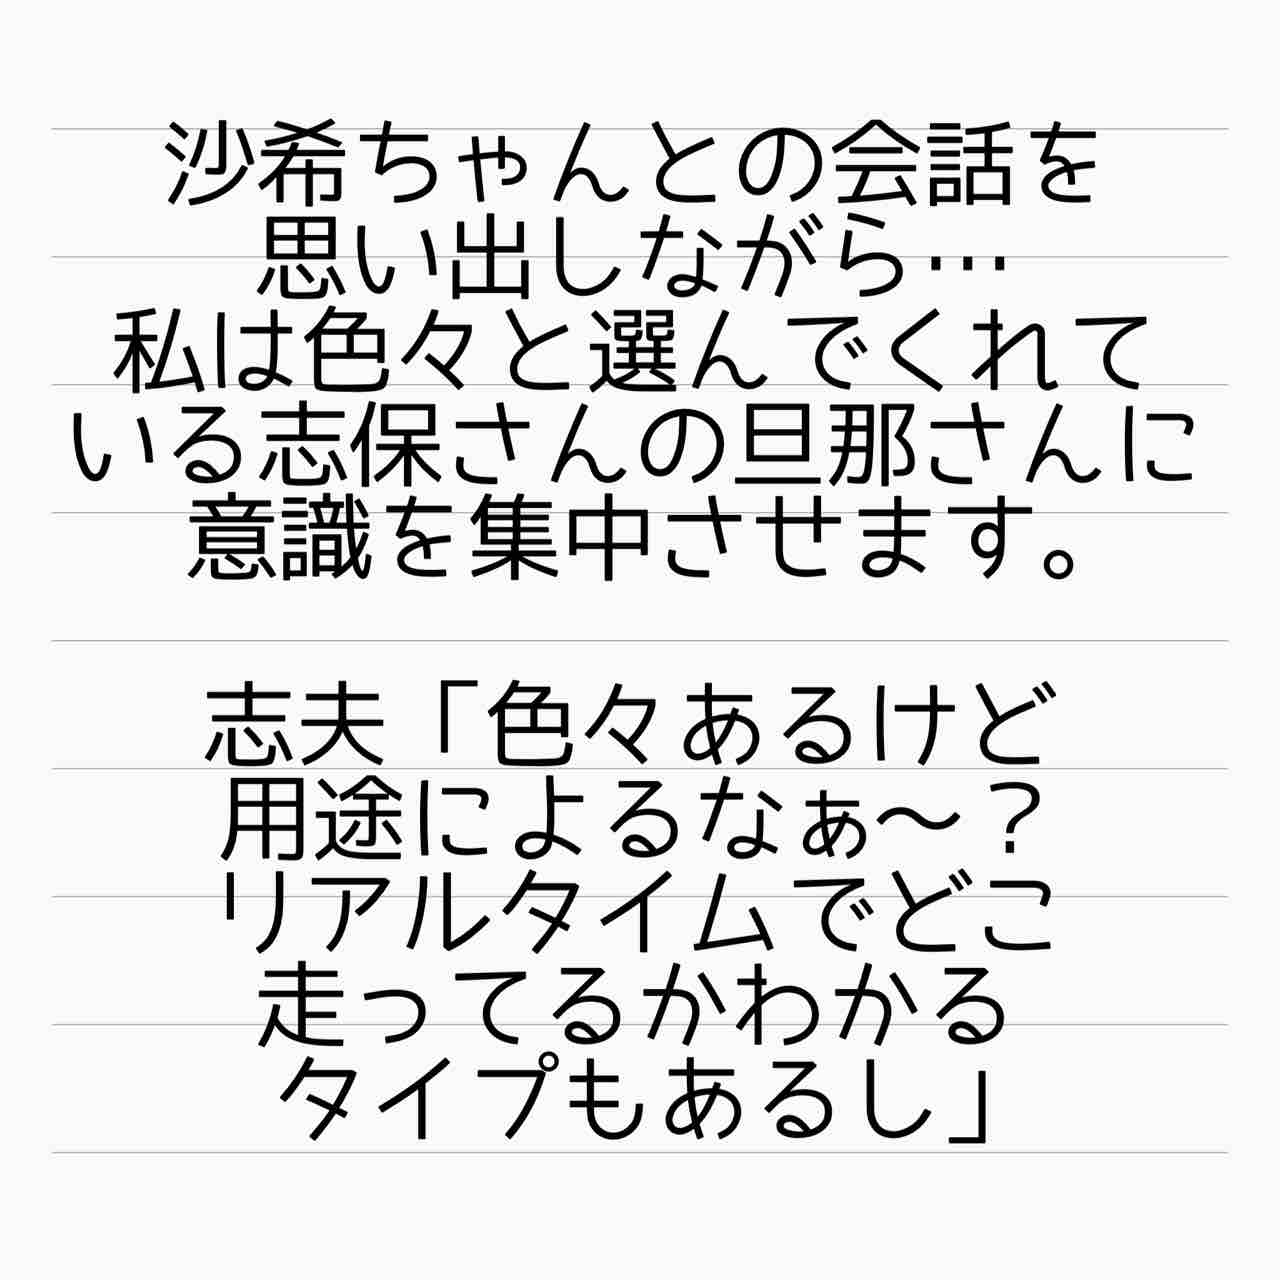 沙希ちゃんとの会話を
思い出しながら…
私は色々と選んでくれて
いる志保さんの旦那さんに
意識を集中させます。
志夫「色々あるけど
用途によるなぁ～？
リアルタイムでどこ
走ってるかわかる
タイプもあるし」